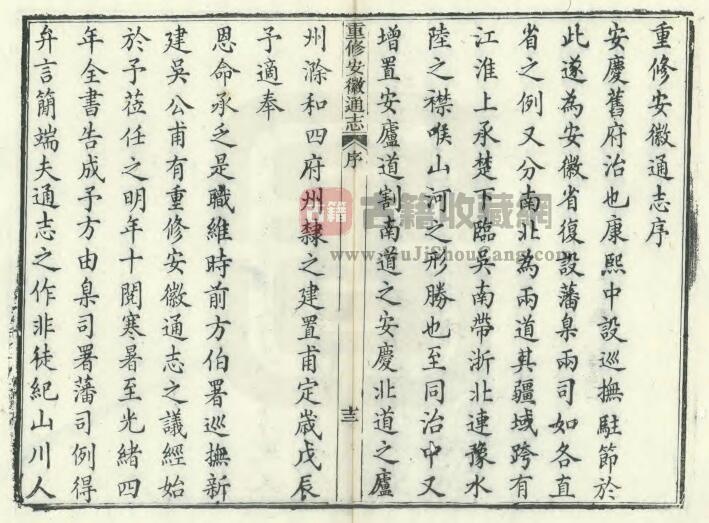 重修安徽通志序
安慶舊府治也康熙中設巡撫駐節於
此遂為安徽省復設藩臬兩司如各直
省之例又分南北為兩道其疆域跨有
江淮上承楚下臨吳南帶浙北連豫水
陸之襟喉山河之形勝也至同治中又
增置安廬道割南道之安慶北道之廬
重修安徽通志
序
十三
州滁和四府州隸之建置甫定歲戊辰
予適奉
恩命承乏是職維時前方伯署巡撫新
建吳公甫有重修安徽通志之議經始
於予蒞任之明年十閱寒暑至光緒四
年全書告成予方由臬司署藩司例得
弁言簡端夫通志之作非徒紀山川人
古籍
古籍收藏網
www.GuJiShouCang.com